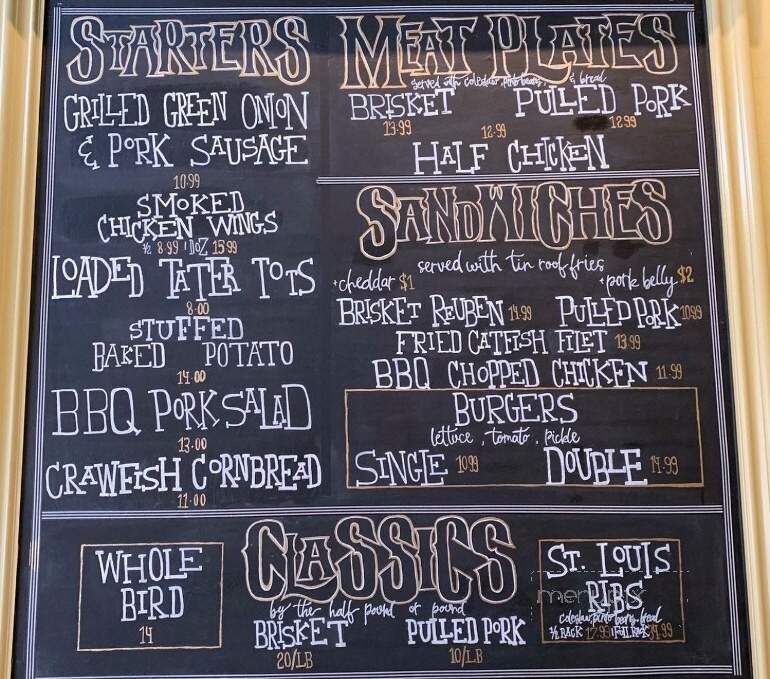 STARTERS
GRILLED GREEN ONION
& PORK SAUSAGE
10.99
SMOKED
CHICKEN WINGS
½ 8.99 1 DOZ 15.99
LOADED TATER TOTS
8.00
STUFFED
BAKED POTATO
14.00
BBQ PORK SALAD
13.00
CRAWFISH CORNBREAD
11.00
MEAT PLATES
served with coleslaw, pinto beans, & bread
BRISKET PULLED PORK
13.99 12.99
12.99
HALF CHICKEN
SANDWICHES
served with tin roof fries
+cheddar $1 +pork belly $2
BRISKET REUBEN 14.99 PULLED PORK 10.99
FRIED CATFISH FILET 13.99
BBQ CHOPPED CHICKEN 11.99
BURGERS
lettuce, tomato, pickle
SINGLE 10.99 DOUBLE 14.99
CLASSICS
by the half pound or pound
WHOLE
BIRD
14
BRISKET PULLED PORK
20/LB 10/LB
ST. LOUIS
RIBS
coleslaw, pinto beans, bread
½ RACK 17.99 FULL RACK